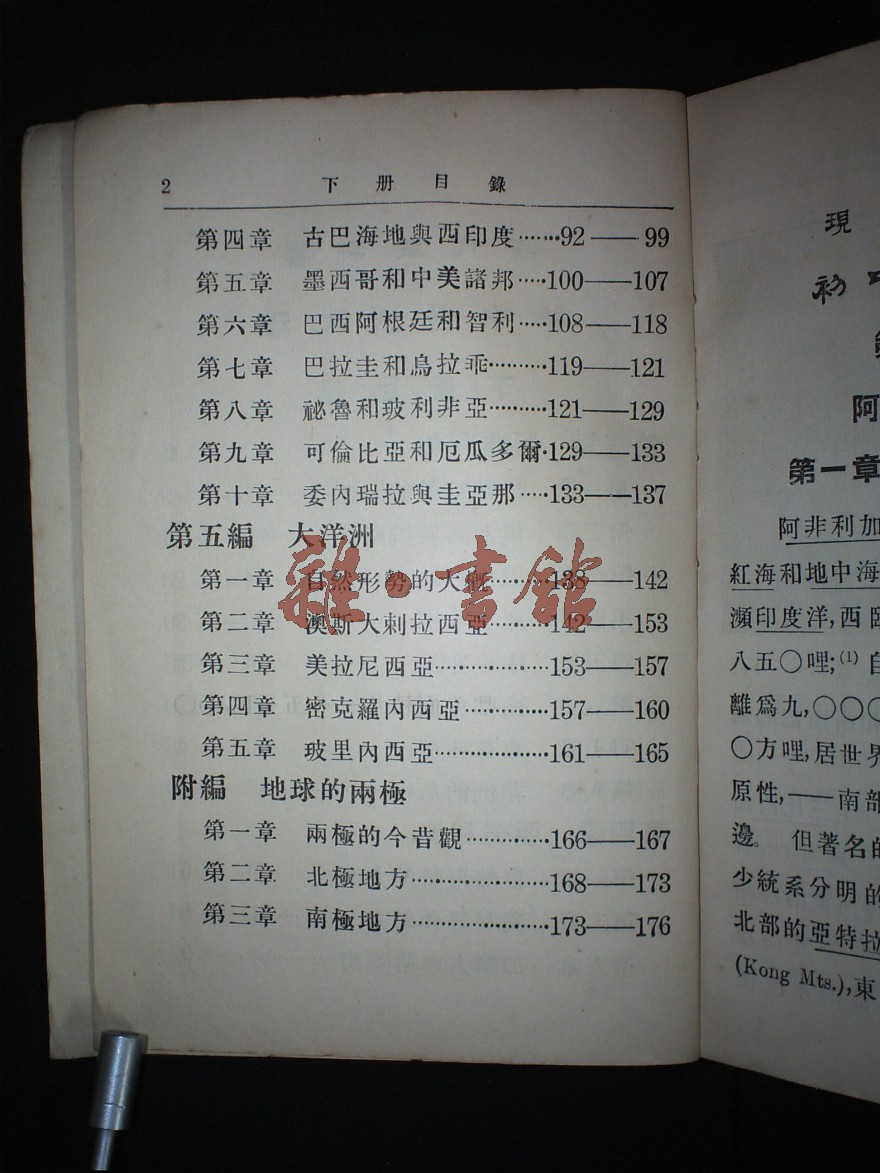 2 下册目錄
第四章 古巴海地與西印度·······92——99
第五章 墨西哥和中美諸邦·····100——107
第六章 巴西阿根廷和智利·····108——118
第七章 巴拉圭和烏拉乖··········119——121
第八章 祕魯和玻利非亞··········121——129
第九章 可倫比亞和厄瓜多爾·129——133
第十章 委內瑞拉與圭亞那·····133——137
第五編 大洋洲
第一章 自然形勢的大概··········138——142
第二章 澳斯大剌拉西亞··········142——153
第三章 美拉尼西亞···············153——157
第四章 密克羅內西亞············157——160
第五章 玻里內西亞···············161——165
附編 地球的兩極
第一章 兩極的今昔觀············166——167
第二章 北極地方··················168——173
第三章 南極地方··················173——176
雜·書館
現
初
阿
第一章
阿非利加
紅海和地中海
瀕印度洋,西
八五〇哩;(1)自
離爲九,〇〇〇
〇方哩,居世界
原性,——南部
邊。但著名的
少統系分明的
北部的亞特拉
(Kong Mts.),東